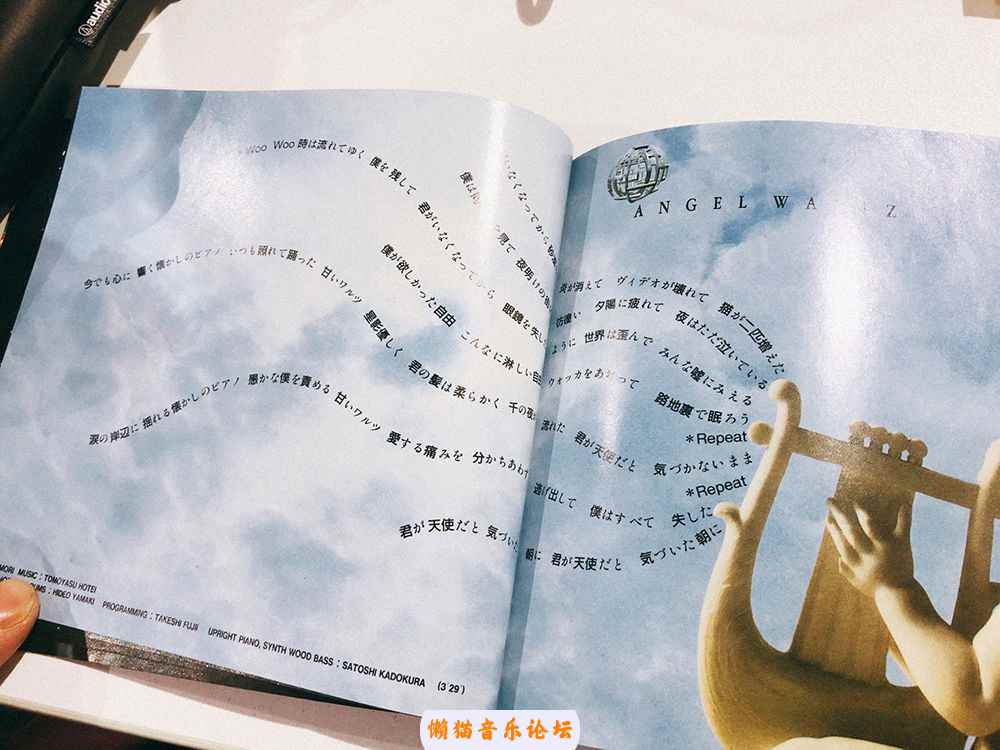 audio
ANGEL WA Z
いなくなってから
炎が消えて ヴィデオが壊れて 猫が二匹増えた
僕は
を見て 夜明けの街
彷徨い 夕陽に疲れて 夜はただ泣いている
Woo Woo 時は流れてゆく 僕を残して 君がいなくなってから 眼鏡を失
ように 世界は歪んで みんな嘘にみえる
僕が欲しかった自由 こんなに淋しい自由
ウォッカをあおって 路地裏で眠ろう
*Repeat
今でも心に 響く懐かしのピアノ いつも照れて踊った 甘いワルツ 星影優しく 君の髪は柔らかく 千の夜が
流れた 君が天使だと 気づかないまま
*Repeat
涙の岸辺に 揺れる懐かしのピアノ 愚かな僕を責める 甘いワルツ 愛する痛みを 分かちあわず
逃げ出して 僕はすべて 失した
君が天使だと 気づいた
朝に 君が天使だと 気づいた朝に
MORI MUSIC : TOMOYASU HOTEI
DRUMS : HIDEO YAMAKI PROGRAMMING : TAKESHI FUJII UPRIGHT PIANO, SYNTH WOOD BASS : SATOSHI KADOKURA (3'29")
懒猫音乐论坛